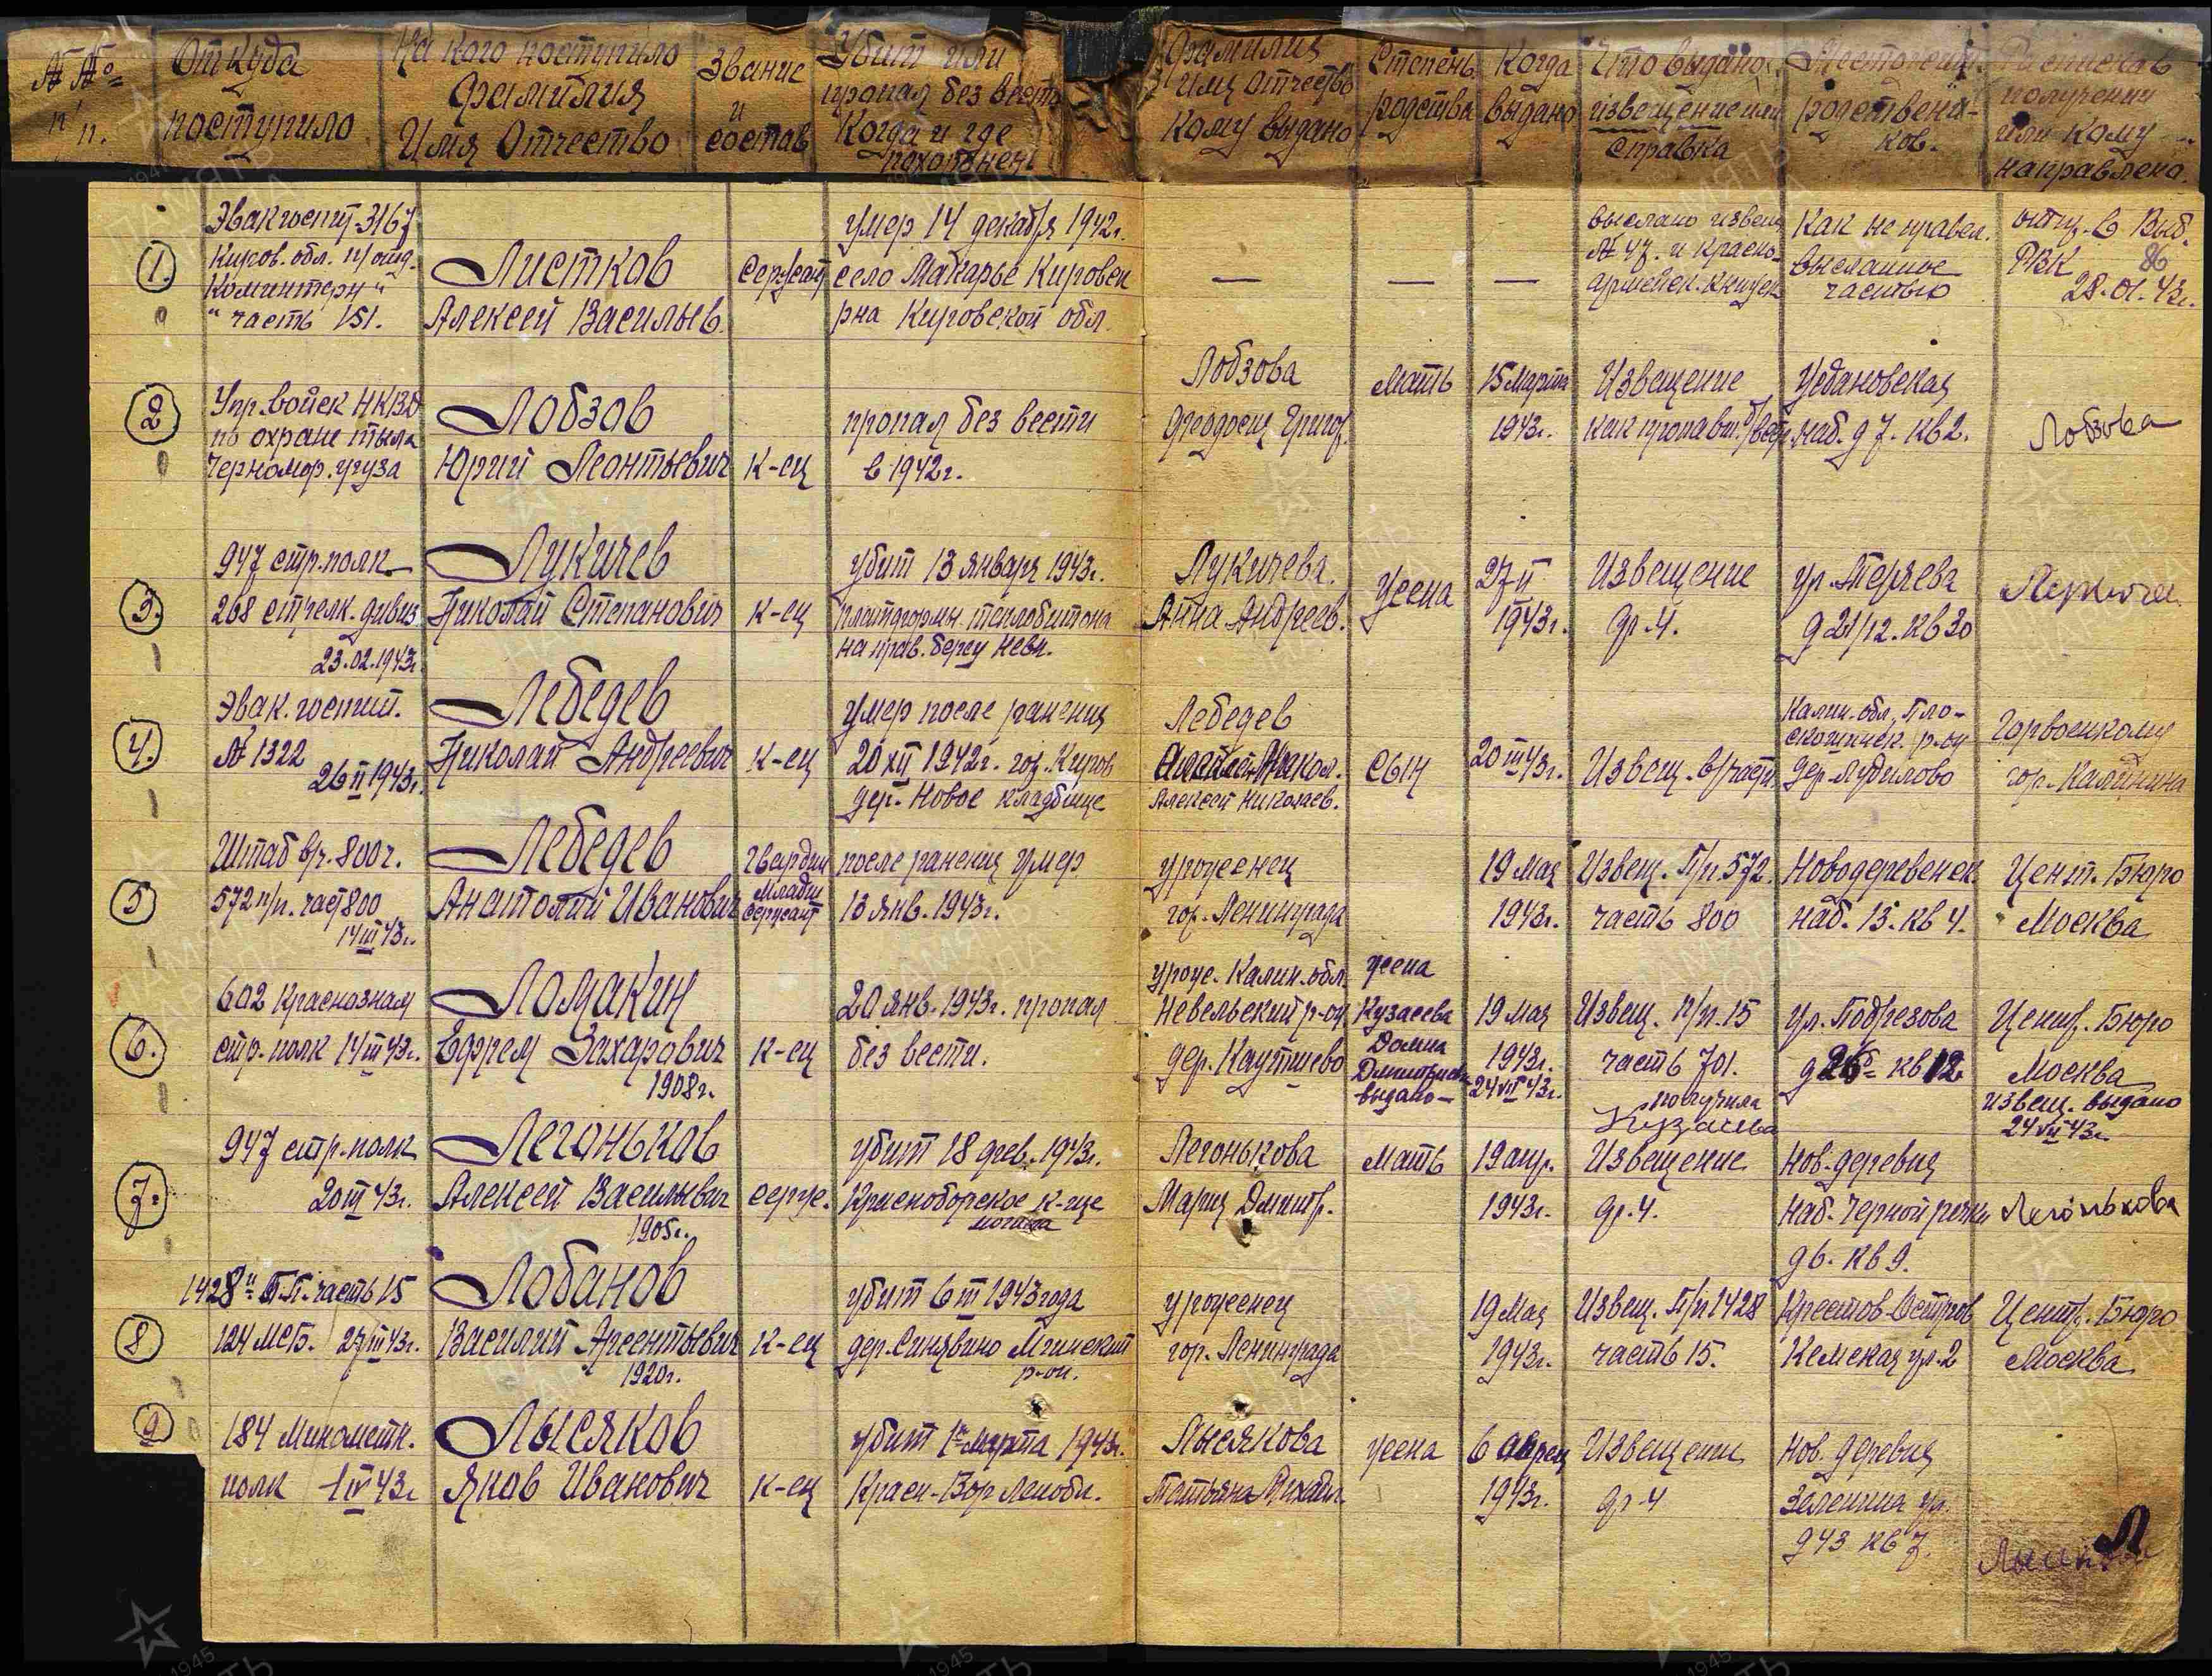 № №
п/п.
Откуда
поступило
На кого поступило
Фамилия
Имя Отчество
Звание
и
состав
Убит или
пропал без вести
Когда и где
похоронен
Фамилия
Имя Отчество
Кому выдано
Степень
родства
Когда
выдано
Что выдано
извещение или
справка
родственни-
ков.
Расписка в
получении
или кому
направлено.
1.
Эвакгоспит-3167
Киров. обл. п/отд.
Коминтерн"
" часть 151.
Листков
Алексей Васильев.
Сержант
умер 14 декабря 1942г.
село Макарье Кировск
рна Кировской обл.
—
—
—
выслано извещ
№ 47. и красно-
армейск. книжка
Как не правил.
высланное
частью
РВК 86
28.01.43г.
2
Упр. войск НКВД
по охране тыла
Черномор. груза
Лобзов
Юрий Леонтьевич
к-ец
пропал без вести
в 1942г.
Лобзова
Феодосия Григор.
Мать
15 Марта
1943г.
Извещение
как пропавш. б/вест
Ждановская
наб. д 7. кв 2.
Лобзова
3.
947 стр. полк
268 стрелк. дивиз
23.02.1943г
Лукичев
Николай Степанович
к-ец
убит 13 января 1943г.
платформы теплобетона
на прав. берегу Невы.
Лукичева.
Анна Андреев.
жена
27 II
1943г.
Извещение
ф.4.
ул. Теряева
д 21/12. кв 30
4.
Эвак. госпит.
№ 1322
26 II 1943г.
Лебедев
Николай Андреевич
к-ец
умер после ранения
20 XII 1942г. гор. Киров
дер. Новое кладбище
Лебедев
Алексей Николаев.
сын
20 III 43г.
Извещ. в/части
Калин. обл. Пло-
скошинск. р-он
дер. Лудилово
Горвоенкому
гор. Калинина
5
Штаб в/ч. 800ч.
572 п/п. част 800
14 III 43г.
Лебедев
Анатолий Иванович
гвардии
младш
сержант
после ранения умер
13 янв. 1943г.
уроженец
гор. Ленинграда
19 Мая
1943г.
Извещ. П/п 572.
часть 800
Новодеревенск
наб. 13. кв 4.
Цент. Бюро
Москва
6.
602 Краснознам
стр. полк 14 III 43г.
Ломакин
Ефрем Захарович
1908г.
к-ец
20 янв. 1943г. пропал
без вести.
уроже. Калин. обл.
Невельский р-он
дер. Каутшево
жена
Кузаева
Домна
Дмитриевн
выдано —
19 Мая
1943г.
24 VII 43г.
Извещ. п/п. 15
часть 701.
получила
Кузаева
ул. Подрезова
д 26 = кв 12
Центр. Бюро
Москва
извещ. выдано
24 VII 43г.
7.
947 стр. полк
20 III 43г.
Легоньков
Алексей Васильевич
1905г.
серже.
убит 18 фев. 1943г.
Красноборское к-ще
могила
Легонькова
Мария Дмитр.
Мать
19 апр.
1943г.
Извещение
ф.4.
Нов. деревня
Наб. Черной речки
д 6. кв 9.
Легонькова
8
1428й П.П. часть 15
124 МСБ. 27 III 43г.
Лобанов
Василий Арсентьевич
1920г.
к-ец
убит 6 III 1943 года
дер. Синявино Мгинский
р-он.
уроженец
гор. Ленинграда
19 Мая
1943г.
Извещ. П/п 1428
часть 15.
Крестов-Остров
Кемская ул. 2
Центр. Бюро
Москва
9
184 Минометн.
полк 1 IV 43г
Лысяков
Яков Иванович
к-ец
убит 1го марта 1943г.
Красн-Бор Ленобл.
Лысякова
Татьяна Михайл.
жена
6 апрел
1943г.
Извещение
ф.4
Нов. деревня
Зеленина ул.
д 43 кв 7.